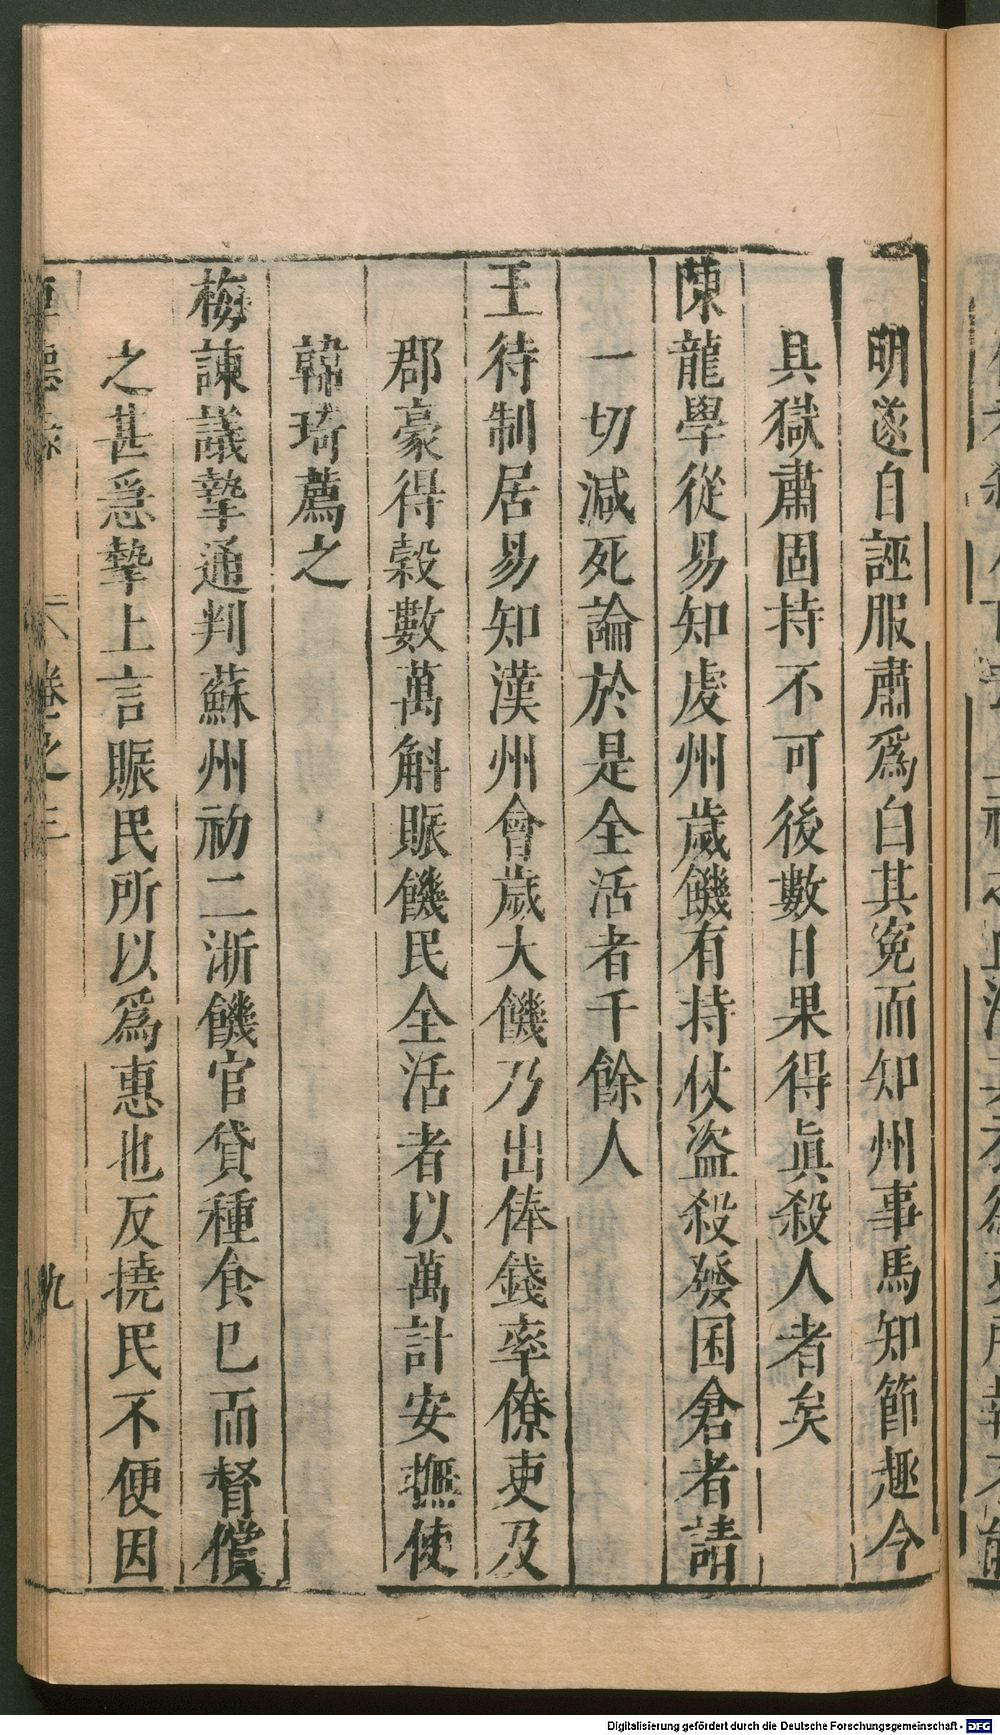 明遂自誣服肅爲白其寃而知州事馬知節趣令
具獄肅固持不可後數日果得眞殺人者矣
陳龍學從易知虔州歲饑有持仗盜殺發囷倉者請
一切減死論於是全活者千餘人
王待制居易知漢州會歲大饑乃出俸錢率僚吏及
郡豪得穀數萬斛賑饑民全活者以萬計安撫使
韓琦薦之
梅諫議摯通判蘇州初二浙饑官貸種食已而督償
之甚急摯上言賑民所以爲惠也反撓民不便因
卷之三
九
Digitalisierung gefördert durch die Deutsche Forschungsgemeinschaft - DFG